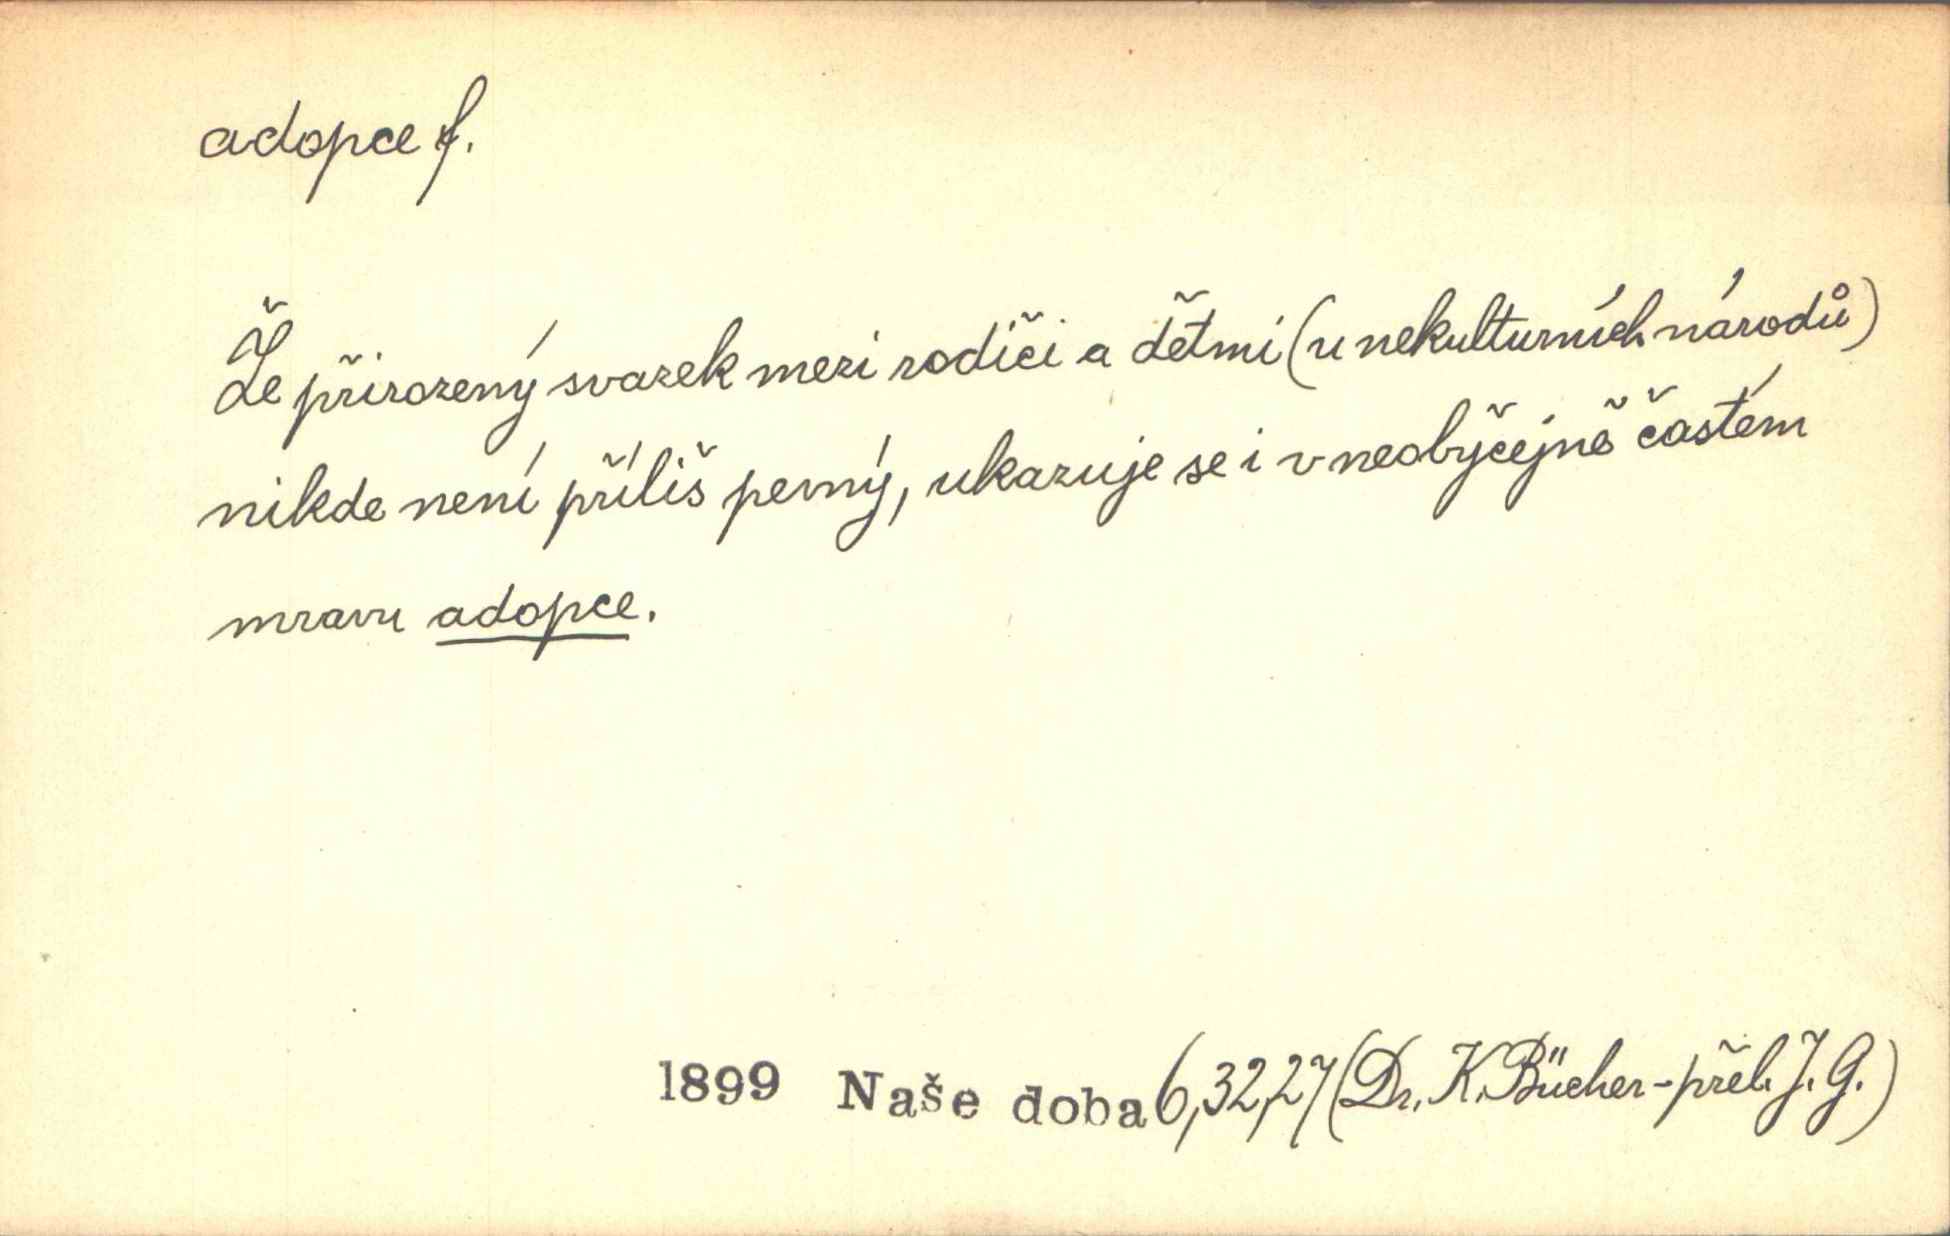 adopce f.
Že přirozený svazek mezi rodiči a dětmi (u nekulturních národů)
nikde není příliš pevný, ukazuje se i v neobyčejně častém
mravu adopce.
1899 Naše doba 6,32,27 (Dr. K. Bücher - přel. J. G.)